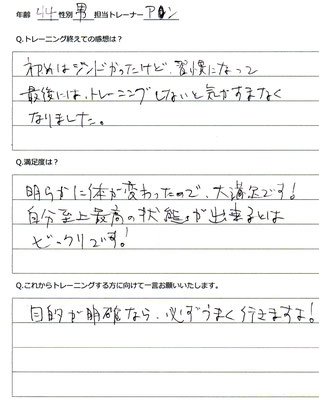 年齢 44 性別 男 担当トレーナー
Q.トレーニング終えての感想は？
初めはシンドかったけど、習慣になって
最後には、トレーニングしないと気がすまなく
なりました。
Q.満足度は？
明らかに体が変わったので、大満足です!
自分至上最高の状態が出来るとは
ビックリです!
Q.これからトレーニングする方に向けて一言お願いいたします。
目的が明確なら、必ずうまく行きますよ!